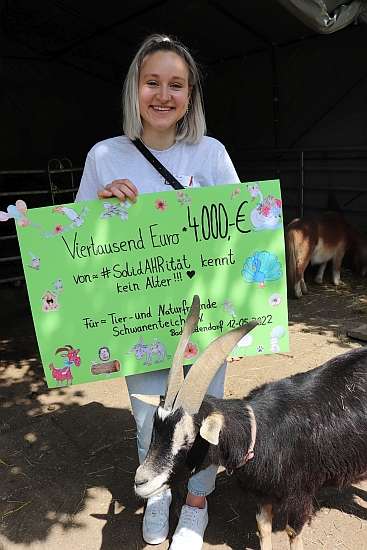 Viertausend Euro * 4.000,-€
von = #SolidAHRität kennt
kein Alter!!! ♥
Für = Tier- und Naturfreunde
Schwanenteich e.V.
12.05.2022